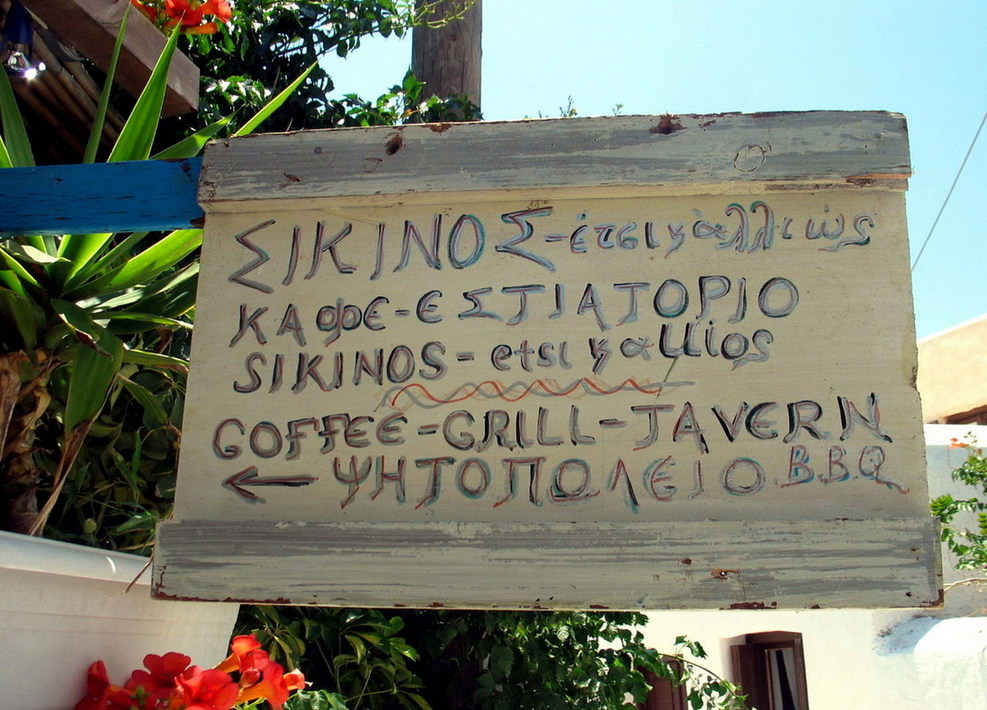 ΣΙΚΙΝΟΣ-έτσι γ άλλιώς
ΚΑφΕ-ΕΣΤΙΑΤΟΡΙΟ
SIKINOS-etsi γ allios
COFFEE-GRILL-TAVERN
← ΨΗΤΟΠΩΛΕΙΟ B.B.Q